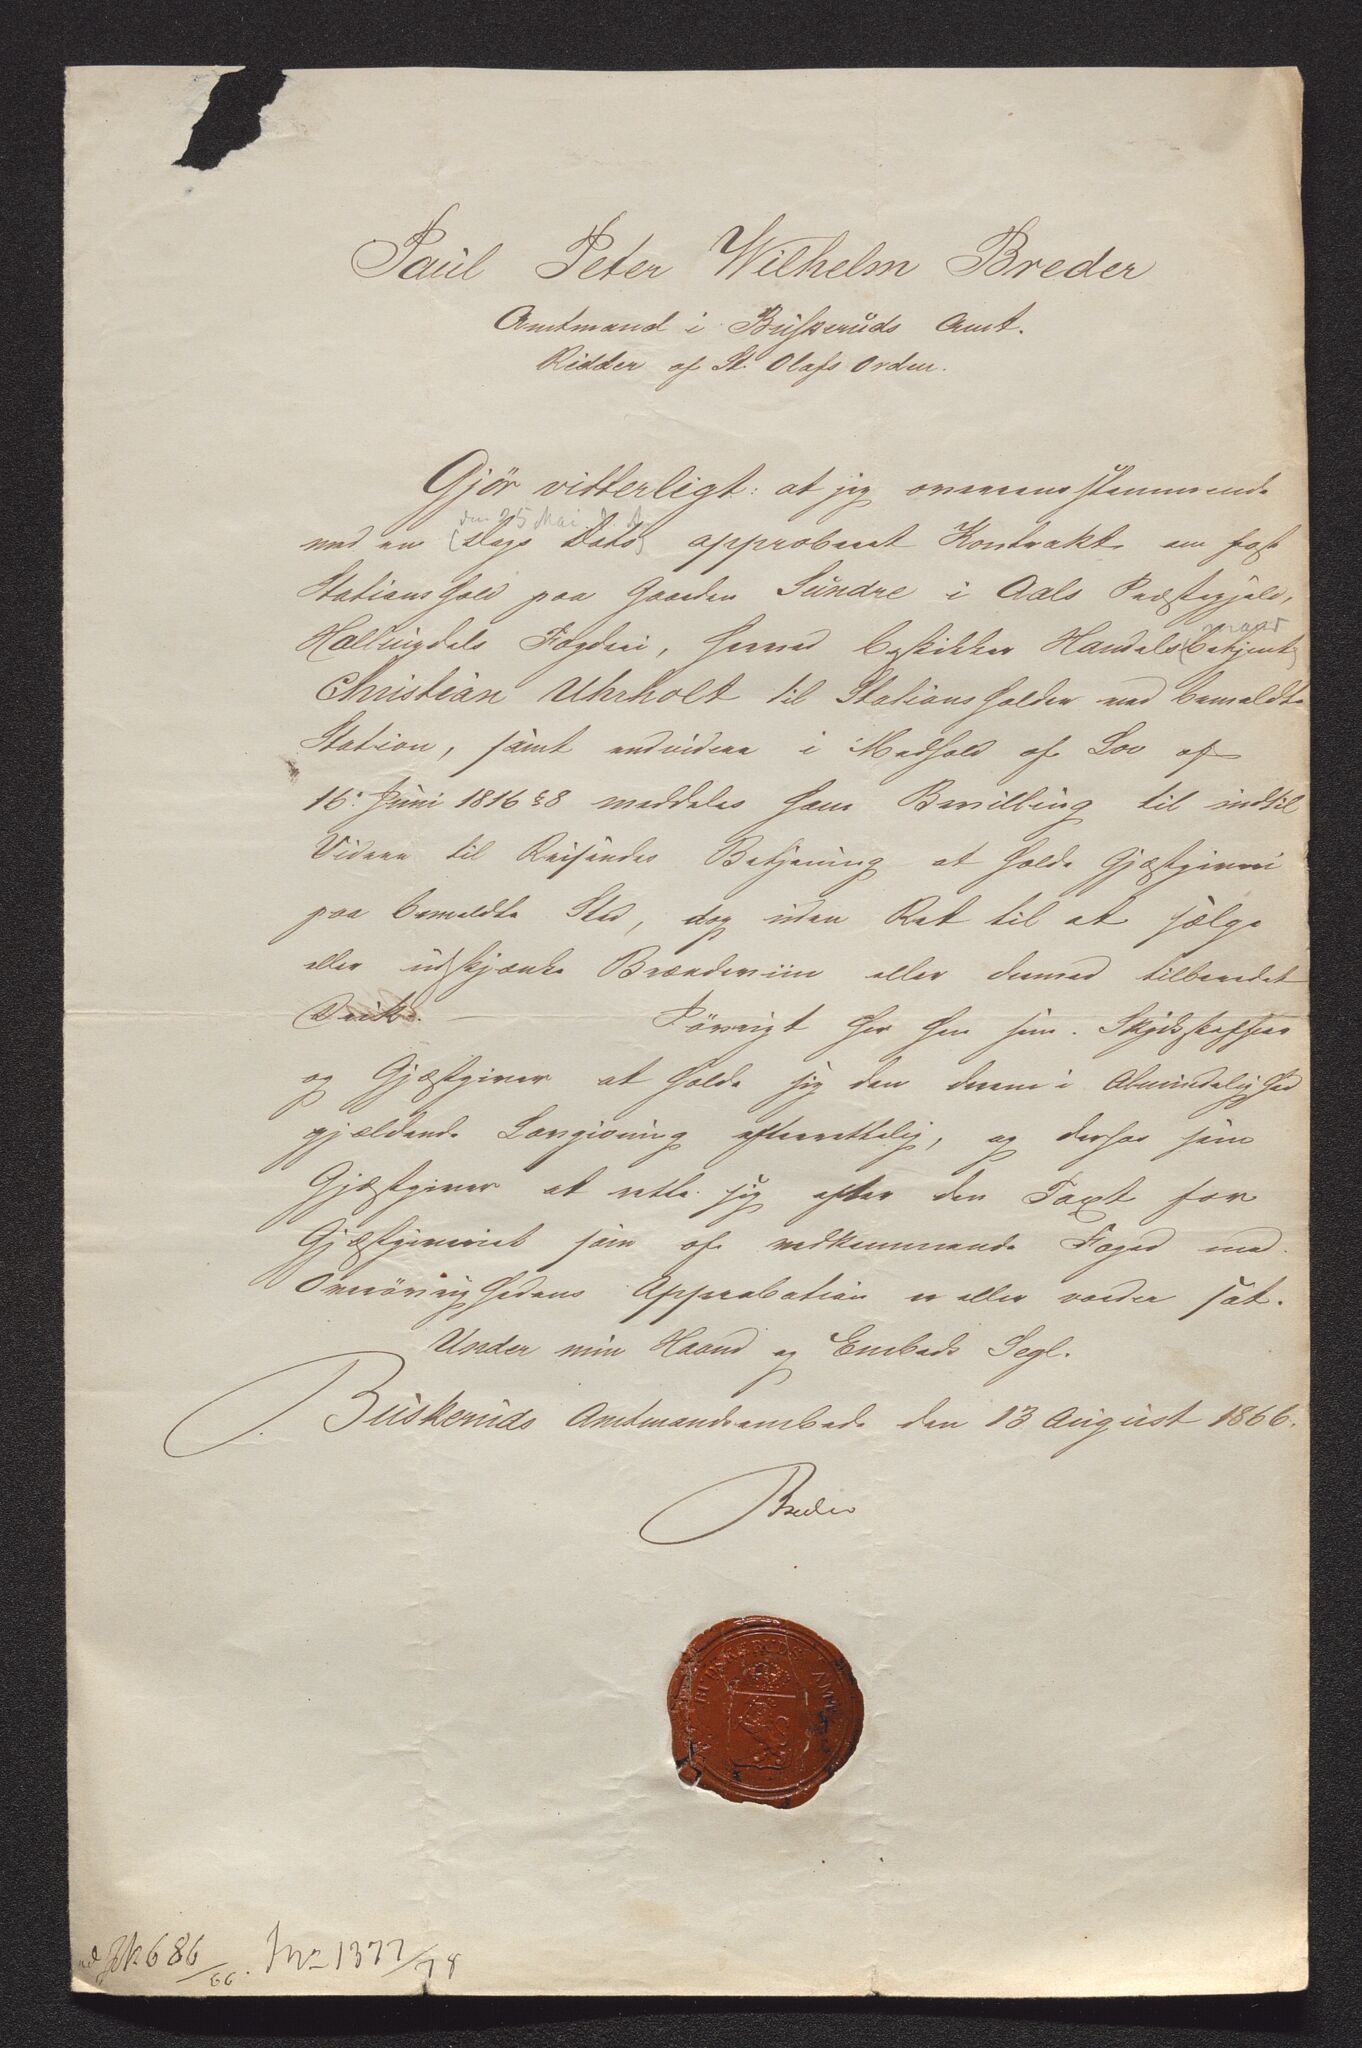 Paul Peter Wilhelm Breder
Amtmand i Buskeruds Amt.
Ridder af St. Olafs Orden.
Gjör vitterligt: at jeg overensstemmende
den 25 Mai d. A.
med en (Dags Dato) approberet Kontrakt om fast
Stationshold paa Gaarden Sundre i Aals Præstegjeld,
maar
Hallingdals Fogderi, herved beskikker Handels(betjent)
Christian Uhrholt til Stationsholder ved bemeldte
Station, samt endvidere i Medhold af Lov af
16. Juni 1816 § 8 meddeles ham Bevilling til indtil
Videre til Reisendes Betjening at holde Gjæstgiveri
paa bemeldte Sted, dog uden Ret til at sælge
eller udskjænke Brændeviin eller dermed tilberedet
Drik. — Iøvrigt har han som Skydsskaffer
og Gjæstgiver at holde sig den derom i Almindelighed
gjældende Lovgivning efterrettelig, og derhos som
Gjæstgiver at rette sig efter den Taxt for
Gjæstgiveriet som af vedkommende Foged med
Overøvrighedens Approbation er eller vorder sat.
Under min Haand og Embeds Segl.
Buskeruds Amtmandsembede den 13 August 1866.
Breder
BUSKERUDS AMT
Jk 686/66. Jnr 1377/78